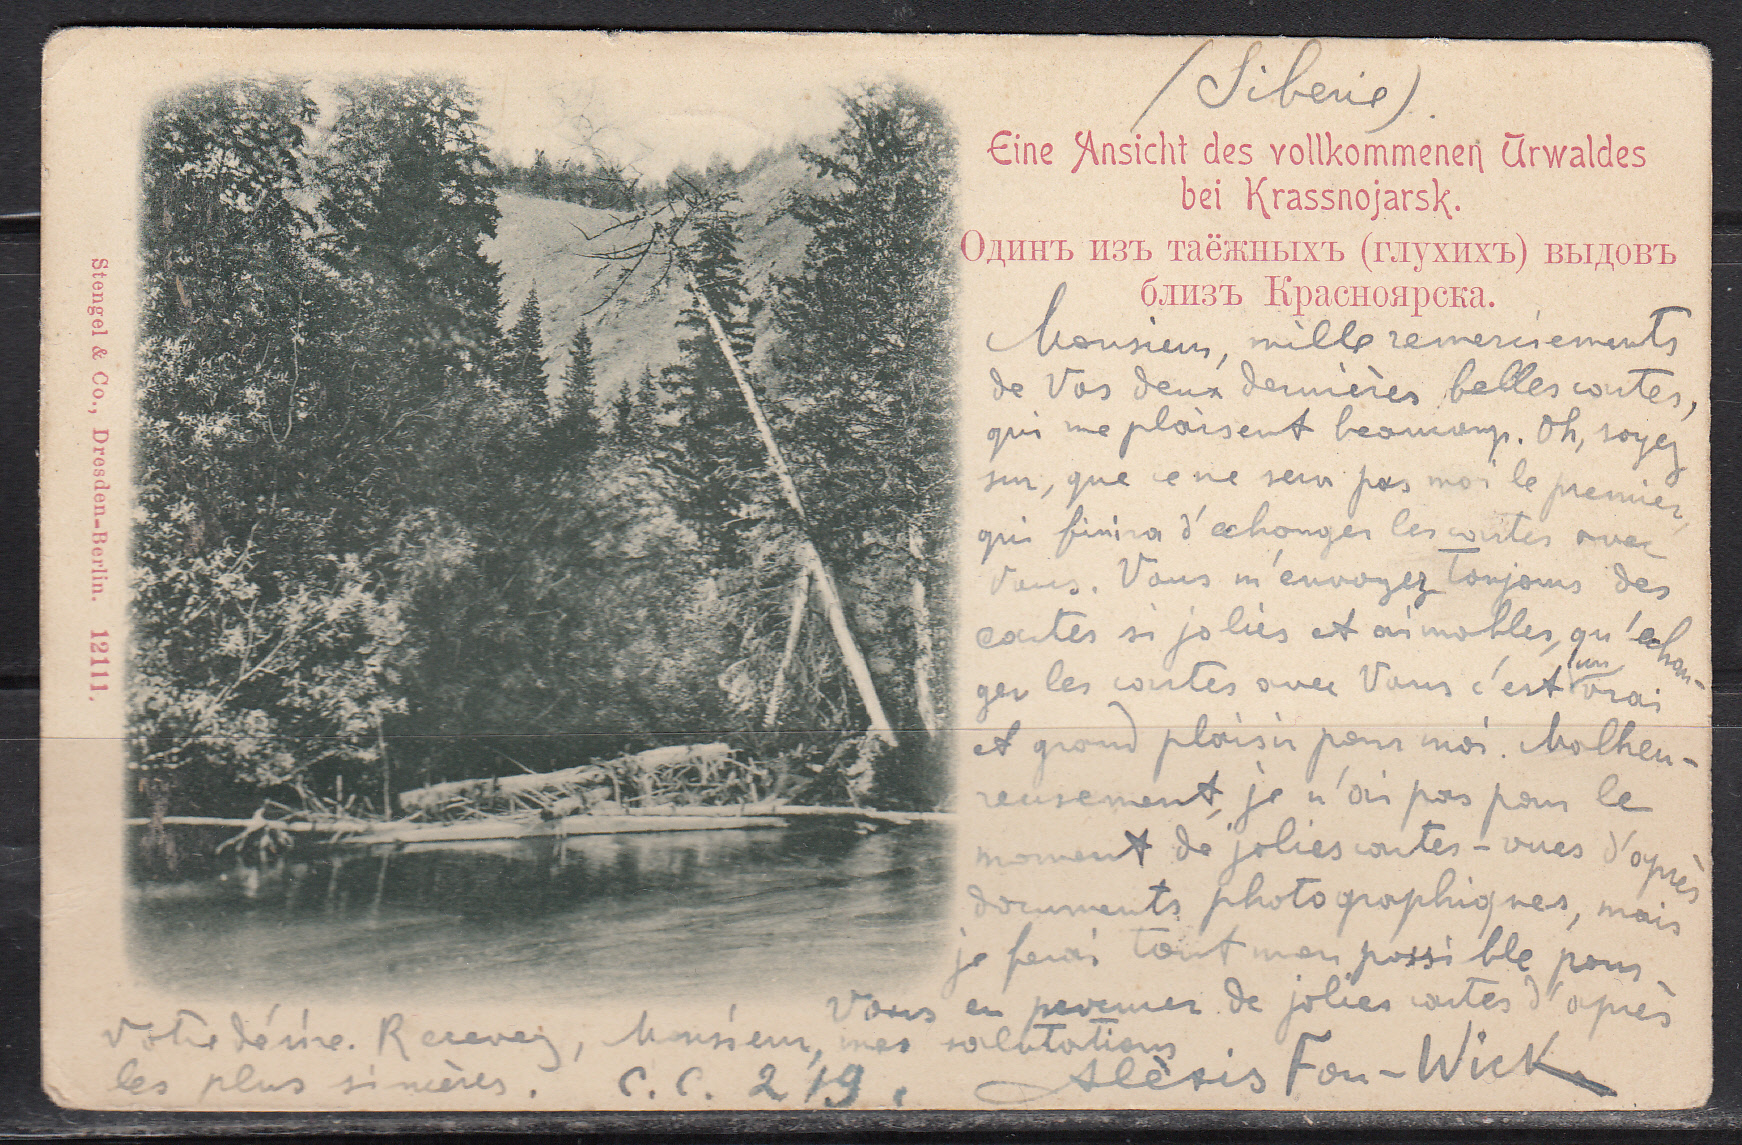 (Siberie).
Eine Ansicht des vollkommenen Urwaldes
bei Krassnojarsk.
Одинъ изъ таёжныхъ (глухихъ) выдовъ
близъ Красноярска.
Stengel & Co., Dresden-Berlin. 12111.
Monsieur, mille remerciements
de Vos deux dernières belles cartes,
qui me plaisent beaucoup. Oh, soyez
sur, que ce ne sera pas moi le premier,
qui finira d'echanger les cartes avec
Vous. Vous m'envoyez toujours des
cartes si jolies et aimables, qu'echan-
ger les cartes avec Vous c'est un vrai
et grand plaisir pour moi. Malheu-
reusement, je n'ai pas pour le
moment de jolies cartes-vues d'après
documents photographiques, mais
je ferai tout mon possible pour
Vous en de jolies cartes d'après
Votre désire. Recevez, Monsieur, mes salutations
les plus sincères. C. C. 219.
Alèxis Fon-Wick